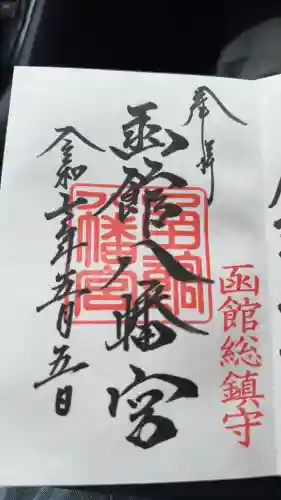 奉拝
函館総鎮守
函館八幡宮
函館八幡宮
令和七年五月五日